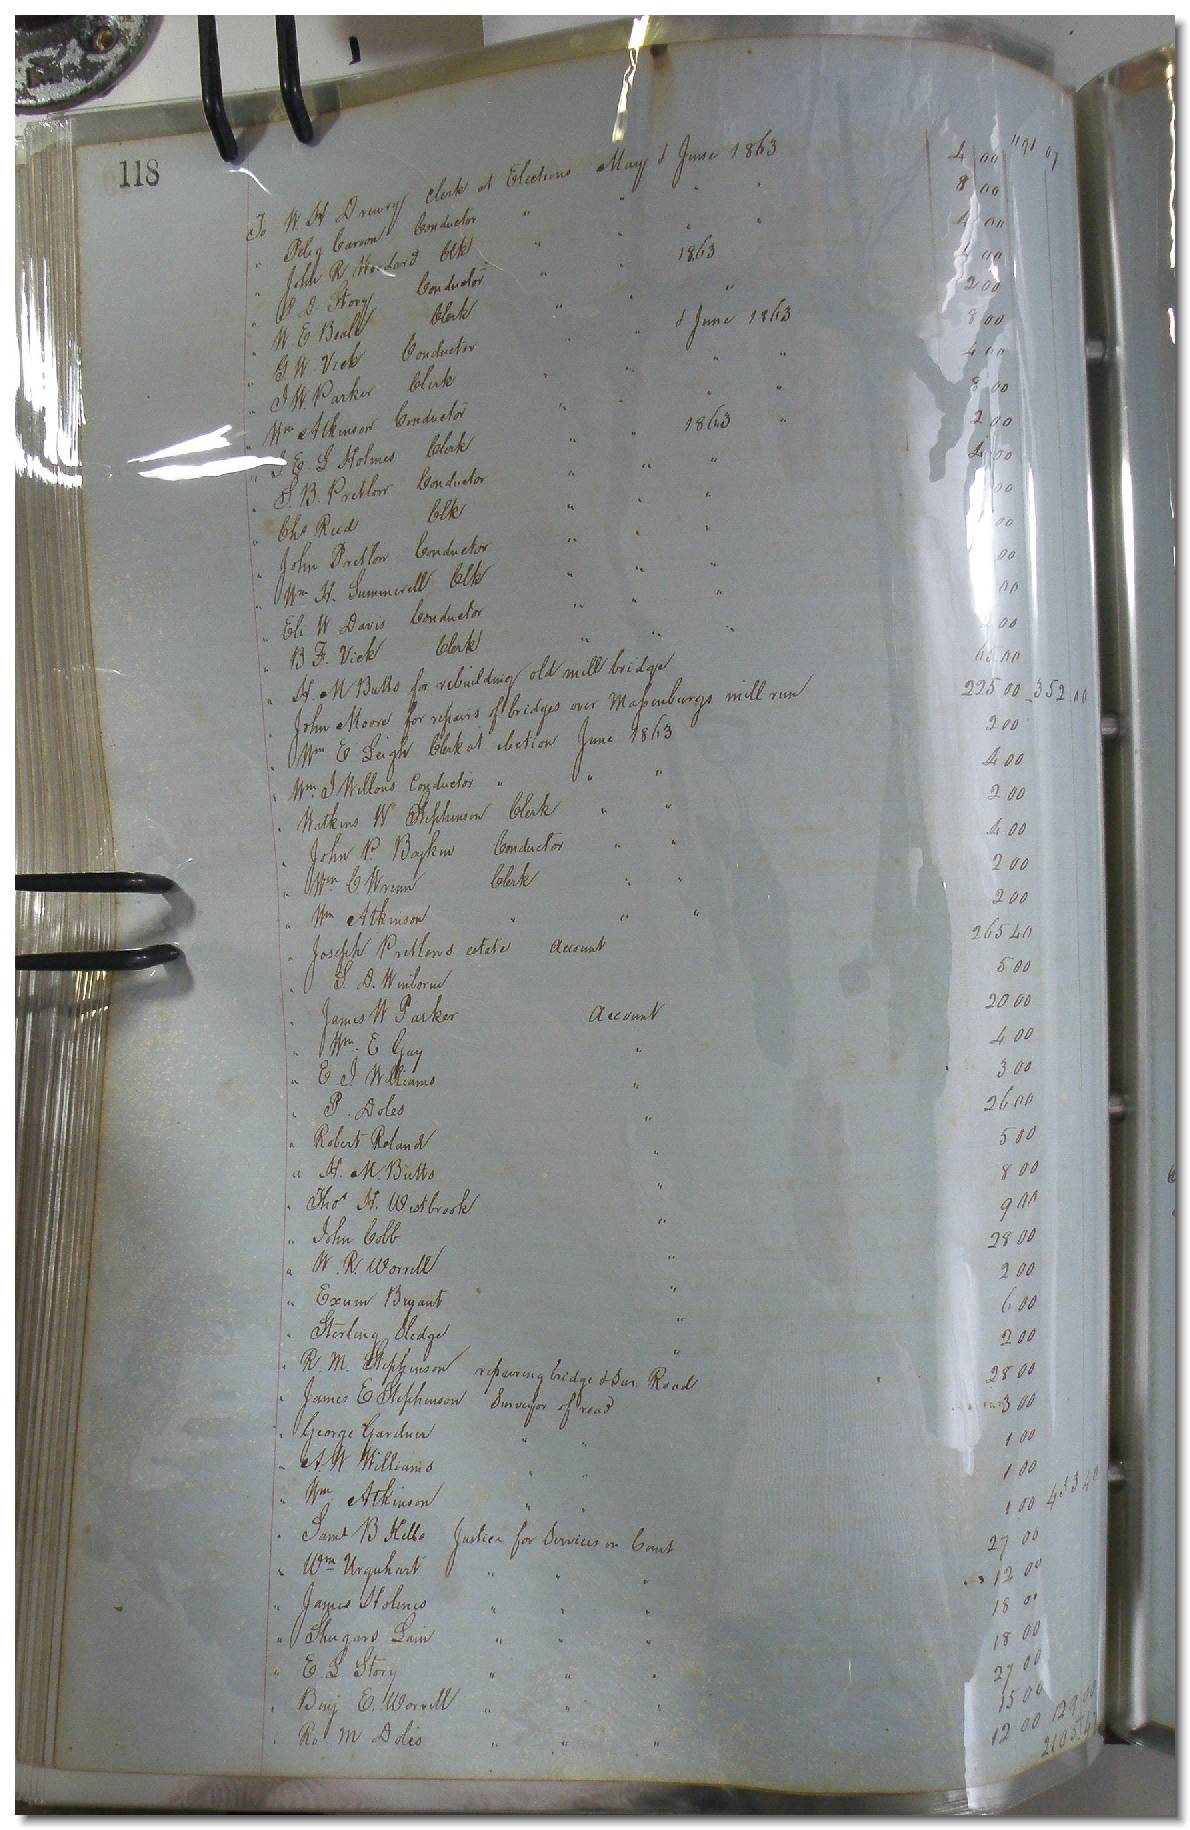 118
1191 07
To W H Drewry Clerk at Elections May & June 1863 4 00
" Peleg Carson Conductor " " " " 8 00
" John R Woodard Clk " " " " 4 00
" S. D. Story Conductor " " 1863 4 00
" W E Beale Clerk " " " 2 00
" G W. Vick Conductor " " & June 1863 8 00
" J W. Parker Clerk " " " " 4 00
" Wm Atkinson Conductor " " " " 8 00
" J E. L Holmes Clerk " " 1863 " 2 00
" S. B. Pretlow Conductor " " " 4 00
" Chs Reed Clk " " " 00
" John Pretlow Conductor " " " 00
" Wm H. Summerell Clk " " " 00
" Eli W Davis Conductor " " " 00
" B F. Vick Clerk " " " 2 00
" H. M Butts for rebuilding old mill bridge 65 00
" John Moore for repairs of bridges over Massenburgs mill run 225 00 352 00
" Wm E Leigh Clerk at election June 1863 2 00
" Wm J Willons Conductor " " " 4 00
" Watkins W Stephenson Clerk " " 2 00
" John P. Boykin Conductor " " 4 00
" Wm C Wrenn Clerk " " 2 00
" Wm Atkinson " " " 2 00
" Joseph Pretlows estate account 265 40
" S. D. Winborne 5 00
" James W Parker Account 20 00
" Wm. E Gay " 4 00
" E J. Williams " 3 00
" P. Doles " 26 00
" Robert Roland " 5 00
" H. M. Butts " 8 00
" Thos H. Westbrook " 9 00
" John Cobb " 28 00
" W. R. Worrell " 2 00
" Exum Bryant " 6 00
" Sterling Sledge " 2 00
" R. M. Stephenson repairing bridge & Sur. Road 28 00
" James E Stephenson Surveyor of road 3 00
" George Gardner " " 1 00
" A W Williams " " 1 00
" Wm Atkinson " " 1 00 433 40
" Saml B Kello Justice for Services in Court 27 00
" Wm Urquhart " " 12 00
" James Holmes " " " 18 00
" Shugars Lain " " " 18 00
" E. L. Story " " " 27 00
" Benj E. Worrell " " " 15 00
" Ro M Doles " " " 12 00 129 00
2105.47